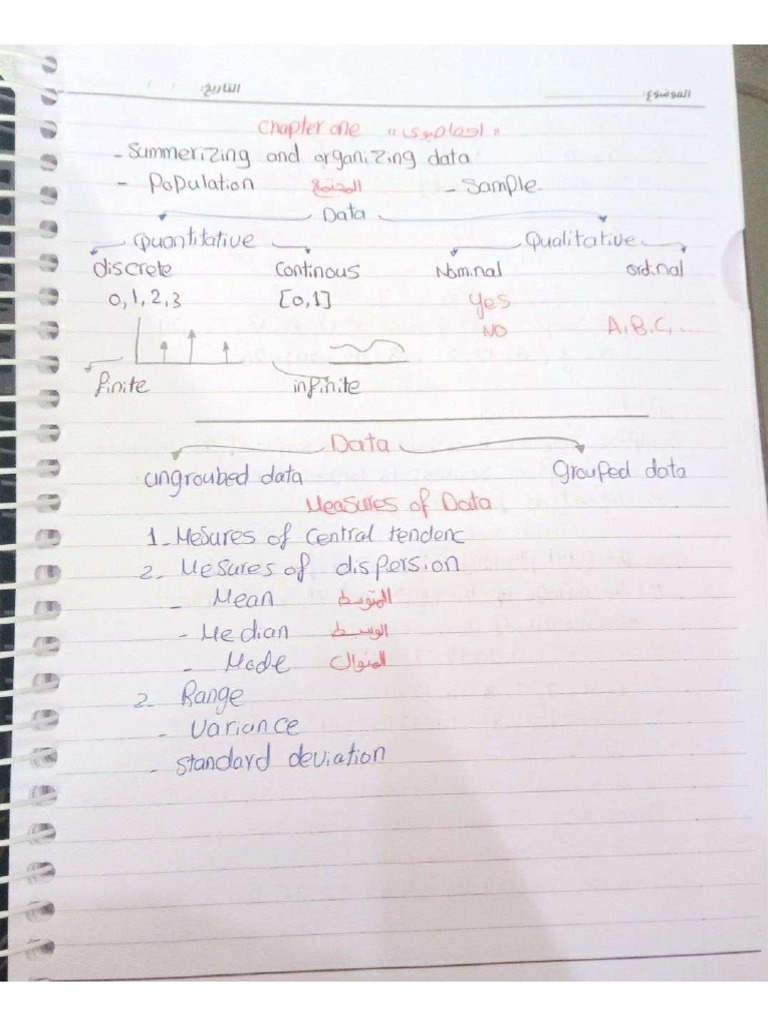 الموضوع: التاريخ: / /
Chapter one
-Summerizing and organizing data
- Population المجتمع - Sample
Data
Quantitative Qualitative
discrete Continous Nominal ordinal
0,1,2,3 [0,1] Yes
NO A,B,C,...
finite infinite
Data
ungroubed data Grouped data
Measures of Data
1-Mesures of Central tendenc
2- Mesures of dispersion
- Mean المتوسط
- Median الوسيط
- Mode المنوال
2- Range
- Variance
- Standard deviation